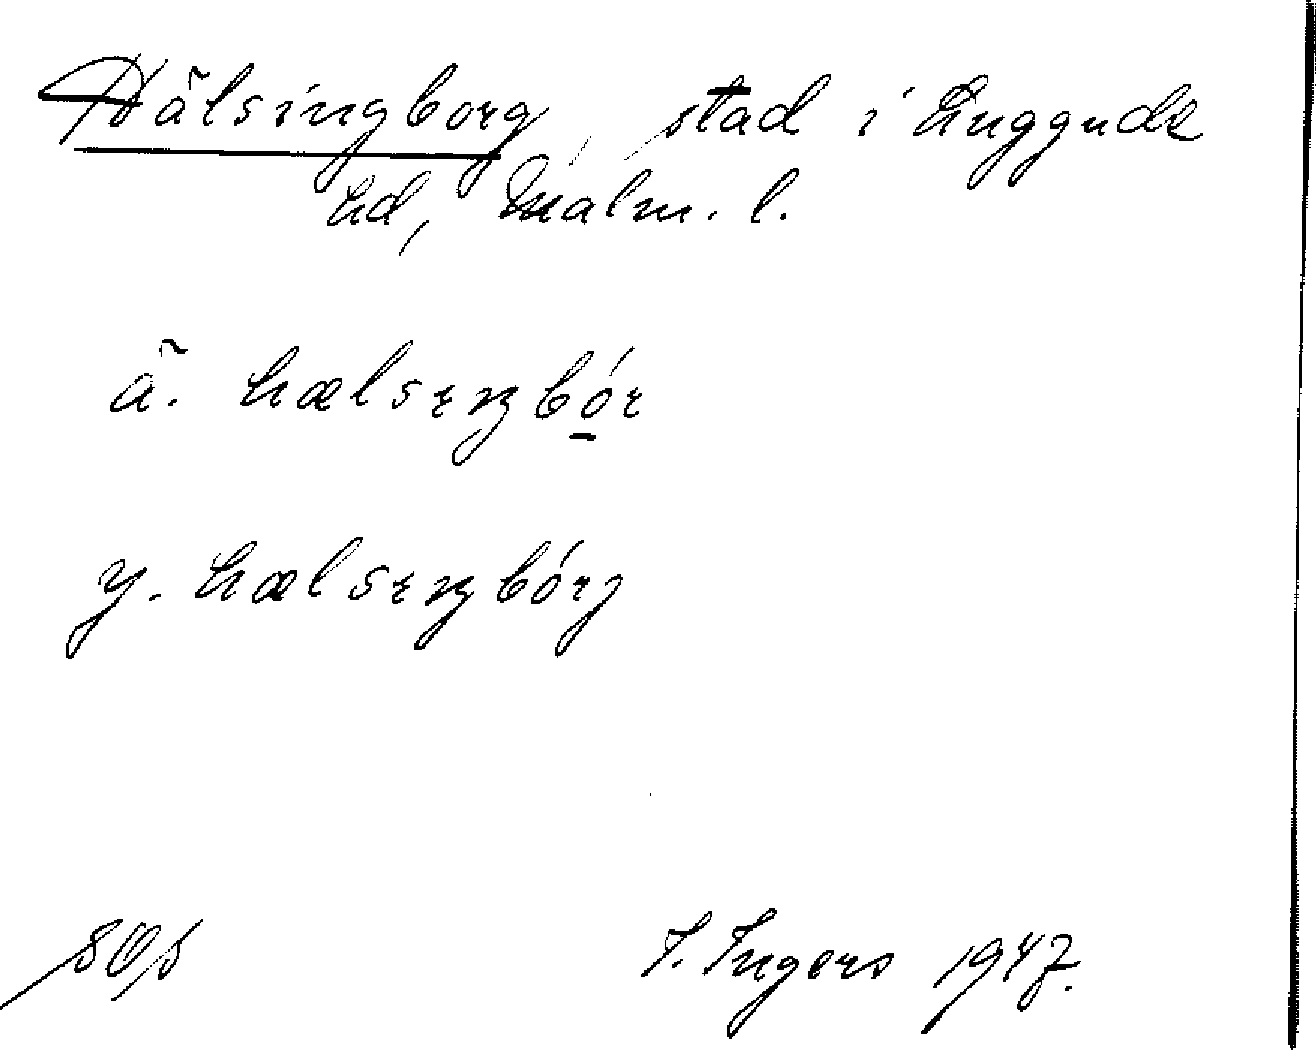 Hälsingborg, stad i Luggude
hd, Malm. l.
ä. hælsɪŋbó̠r
y. hælsɪŋbórj
I. Ingers 1947.